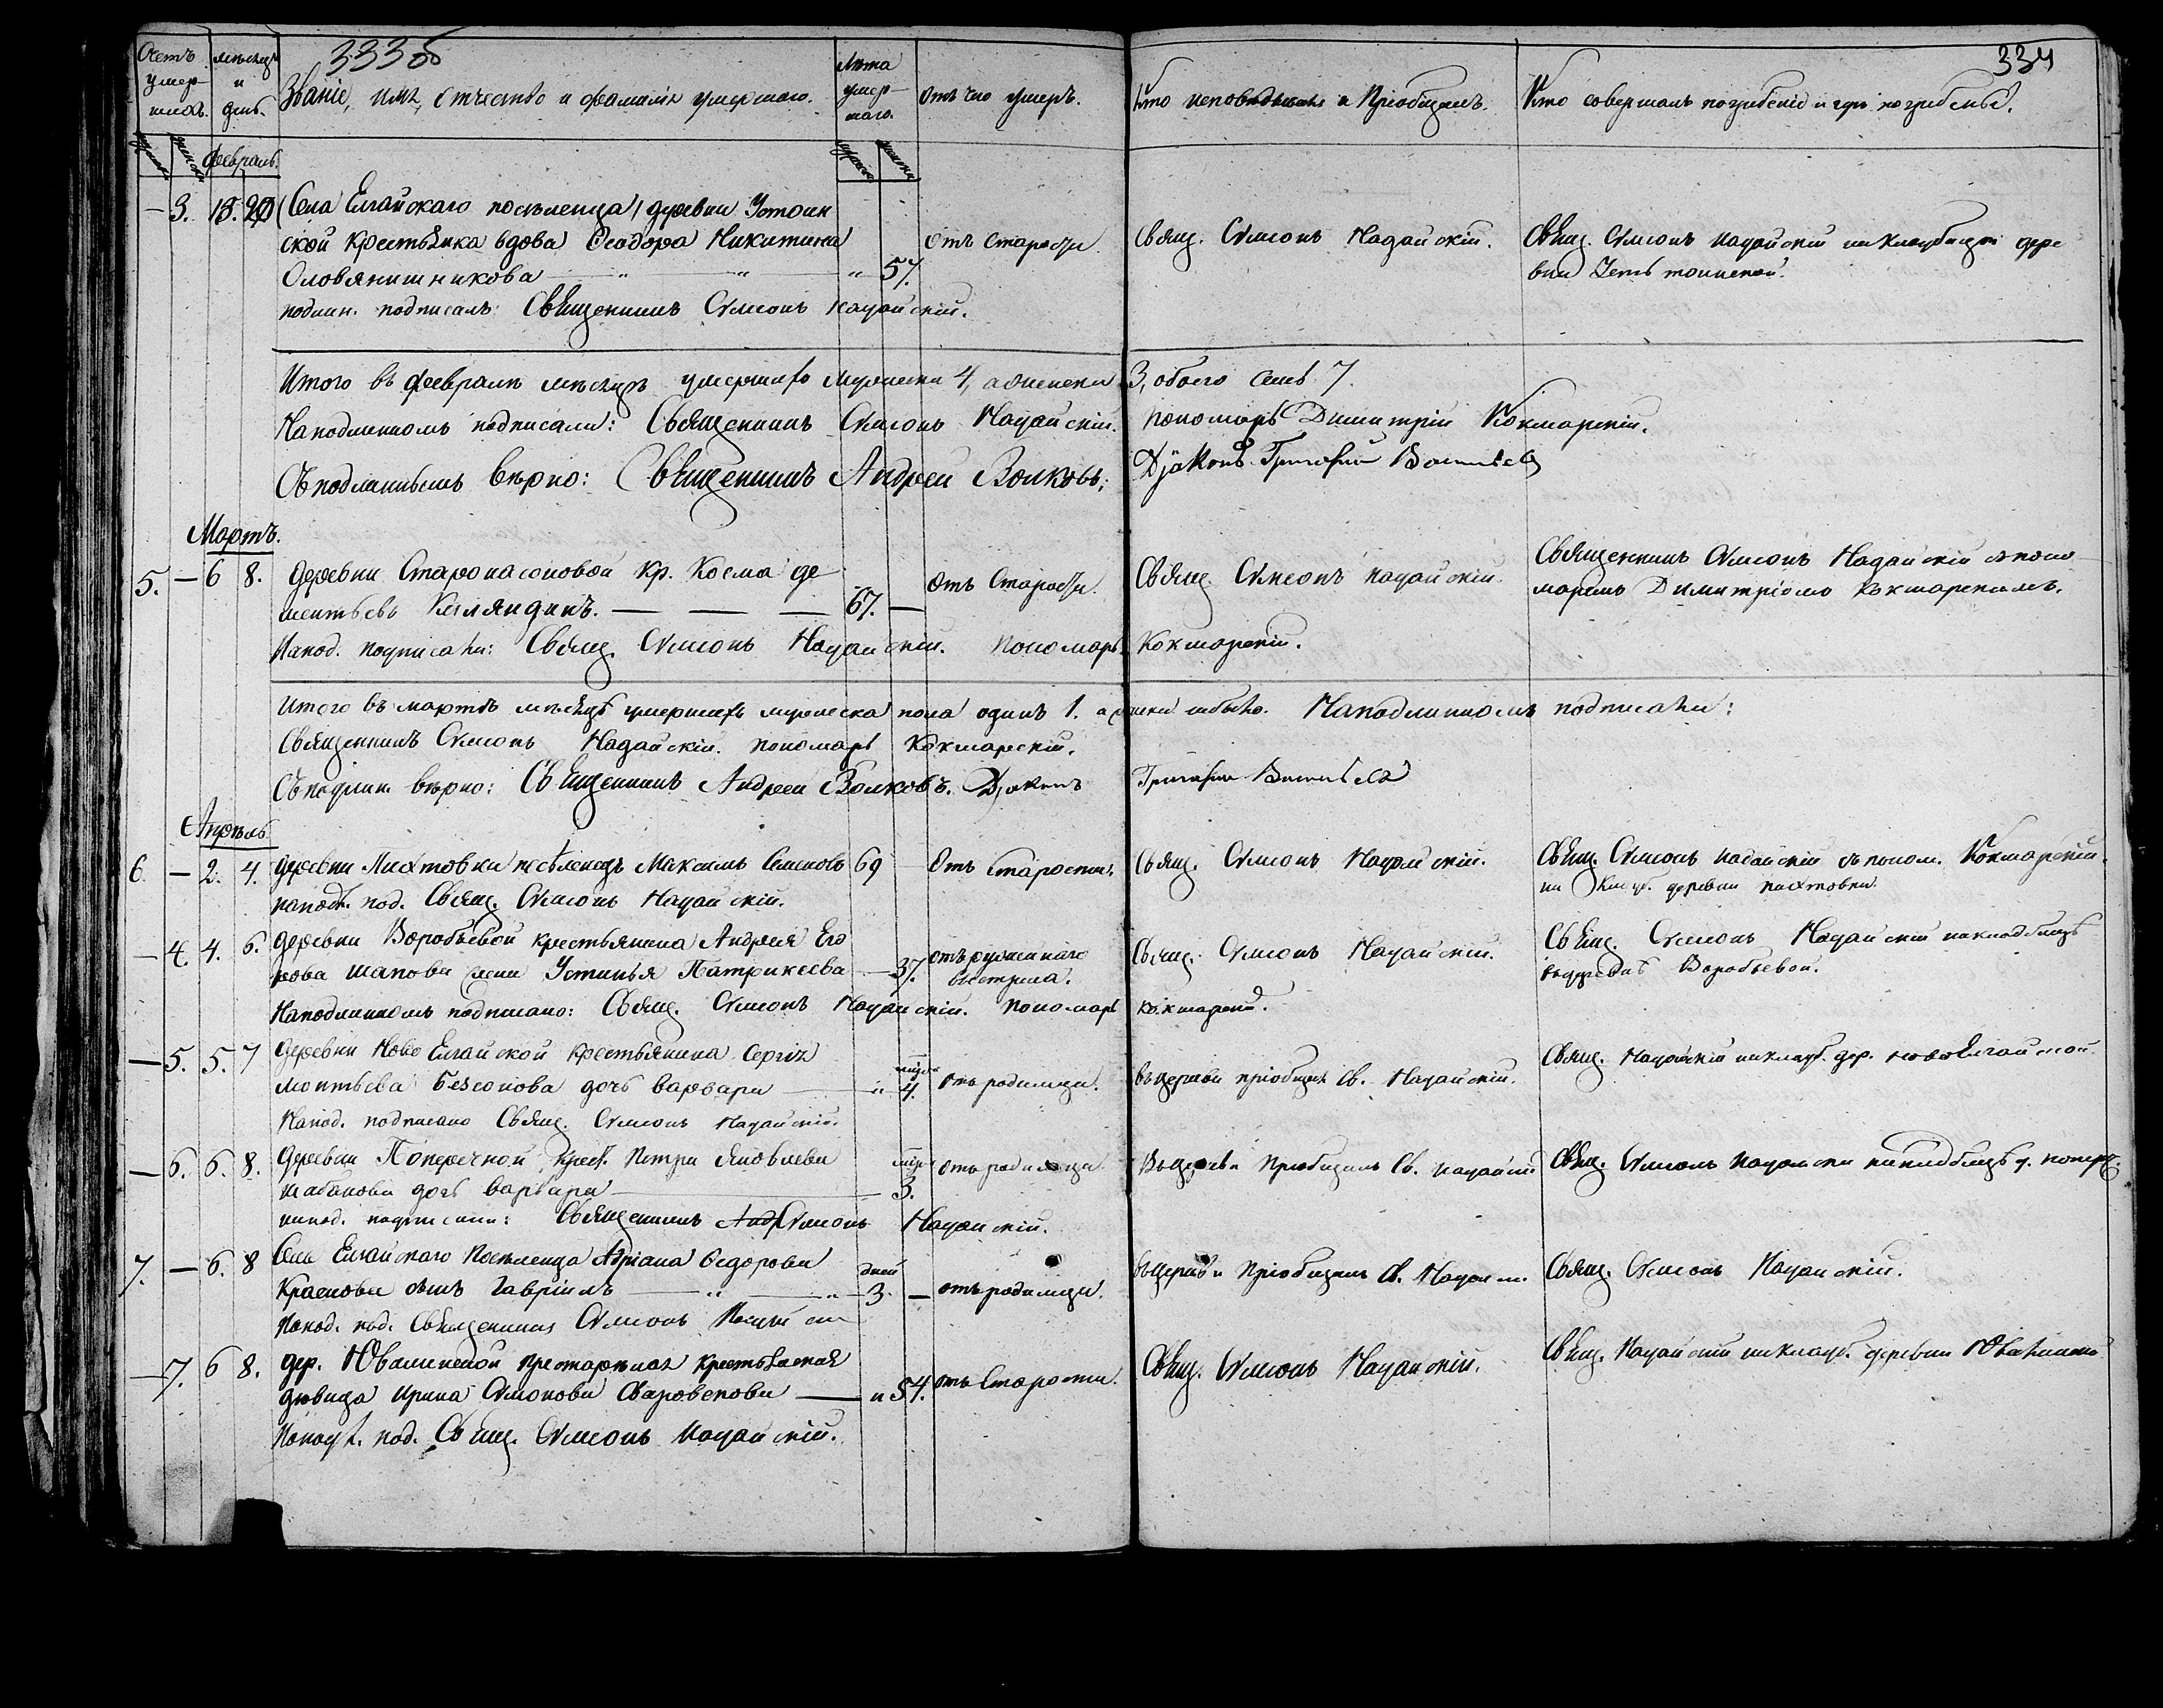 333об
334
Счетъ умер-шихъ.
мѣсяцъ и день.
Званіе, имя, отчество и фамилія умершаго.
Лѣта умер-шаго.
Отъ чего умеръ.
Кто исповѣдывалъ и Пріобщалъ.
Кто совершалъ погребеніе и гдѣ погребены.
Февраль.
3. 18. 20 Села Елгайскаго посѣленца (деревни Устоин
ской Крестьянка вдова) Феодора Никитина отъ Старости Свящ. Сѵмеонъ Надайскій. Свящ. Сѵмеонъ Надайскій на кладбищѣ дере
Оловянишникова 57. вни
подлин. подписалъ Священникъ Сѵмеонъ Надайскій.
Итого въ февралѣ мѣсяцѣ умершихъ мужеска 4, а женска 3, обоего 7.
На подлинномъ подписали: Священникъ Сѵмеонъ Надайскій. пономарь Димитрій Кокшарскій.
Съ подлиннымъ вѣрно: Священникъ Андрей Волковъ; Дьяконъ Григорій
Мартъ.
5. — 6 8. Деревни Старонасоновой кр. Косма де
ментьевъ Келляндинъ. 67. — Отъ Старости. Свящ. Сѵмеонъ Надайскій. Священникъ Сѵмеонъ Надайскій съ поно
маремъ Димитріемъ Кокшарскимъ.
На под. подписали: Свящ. Сѵмеонъ Надайскій. Пономарь Кокшарскій.
Итого въ мартѣ мѣсяцѣ умершихъ мужеска пола одинъ 1. а женска небыло. На подлинномъ подписали:
Священникъ Сѵмеонъ Надайскій. пономарь Кокшарскій.
Съ подлин. вѣрно: Священникъ Андрей Волковъ. Дьяконъ Григорій
Апрѣль
6. — 2. 4. Деревни Пихтовки посѣленецъ Максимъ Семеновъ 69 Отъ Старости. Свящ. Сѵмеонъ Надайскій. Свящ. Сѵмеонъ Надайскій съ поном. Кокшарскій.
на клад. деревни пихтовки.
на под. под. Свящ. Сѵмеонъ Надайскій.
— 4. 4. 6. Деревни Воробьевой крестьянина Андрея Его
рова Шапова жена Устинья Патрикеева — 37. отъ ружейнаго
выстрела. Свящ. Сѵмеонъ Надайскій. Свящ. Сѵмеонъ Надайскій на кладбищѣ
въ деревнѣ Воробьевой.
На подлинномъ подписано: Свящ. Сѵмеонъ Надайскій. Пономарь Кокшарскій.
— 5. 5. 7 Деревни Ново Елгайской крестьянина Сергія
Моптьева Безсонова дочь варвара 4. отъ родимца. въ церкви пріобщилъ Св. Надайскій. Свящ. Надайскій на клад. дер. ново Елгайской.
На под. подписано Свящ. Сѵмеонъ Надайскій.
— 6. 6. 8. Деревни Поперечной Крест. Петра Яковлева
Шабанова дочь варвара 3. отъ родимца Въ церкви Пріобщилъ Св. Надайскій Свящ. Сѵмеонъ Надайскій на кладбищѣ д. попереч.
на под. подписали: Священникъ Сѵмеонъ Надайскій.
7. — 6. 8 Села Елгайскаго Поселенца Адріана Федорова
Краснова сынъ Гавріилъ дней 3. — отъ родимца. въ церкви Пріобщилъ С. Надайскій. Свящ. Сѵмеонъ Надайскій.
На под. под. Священникъ Сѵмеонъ Надайскій
— 7. 6 8. дер. Ювалинской престарелая крестьянская
дѣвица Ирина Симонова 54. отъ Старости. Свящ. Сѵмеонъ Надайскій. Свящ. Надайскій на клад. деревни Ювалинской
На под. под. Свящ. Сѵмеонъ Надайскій.